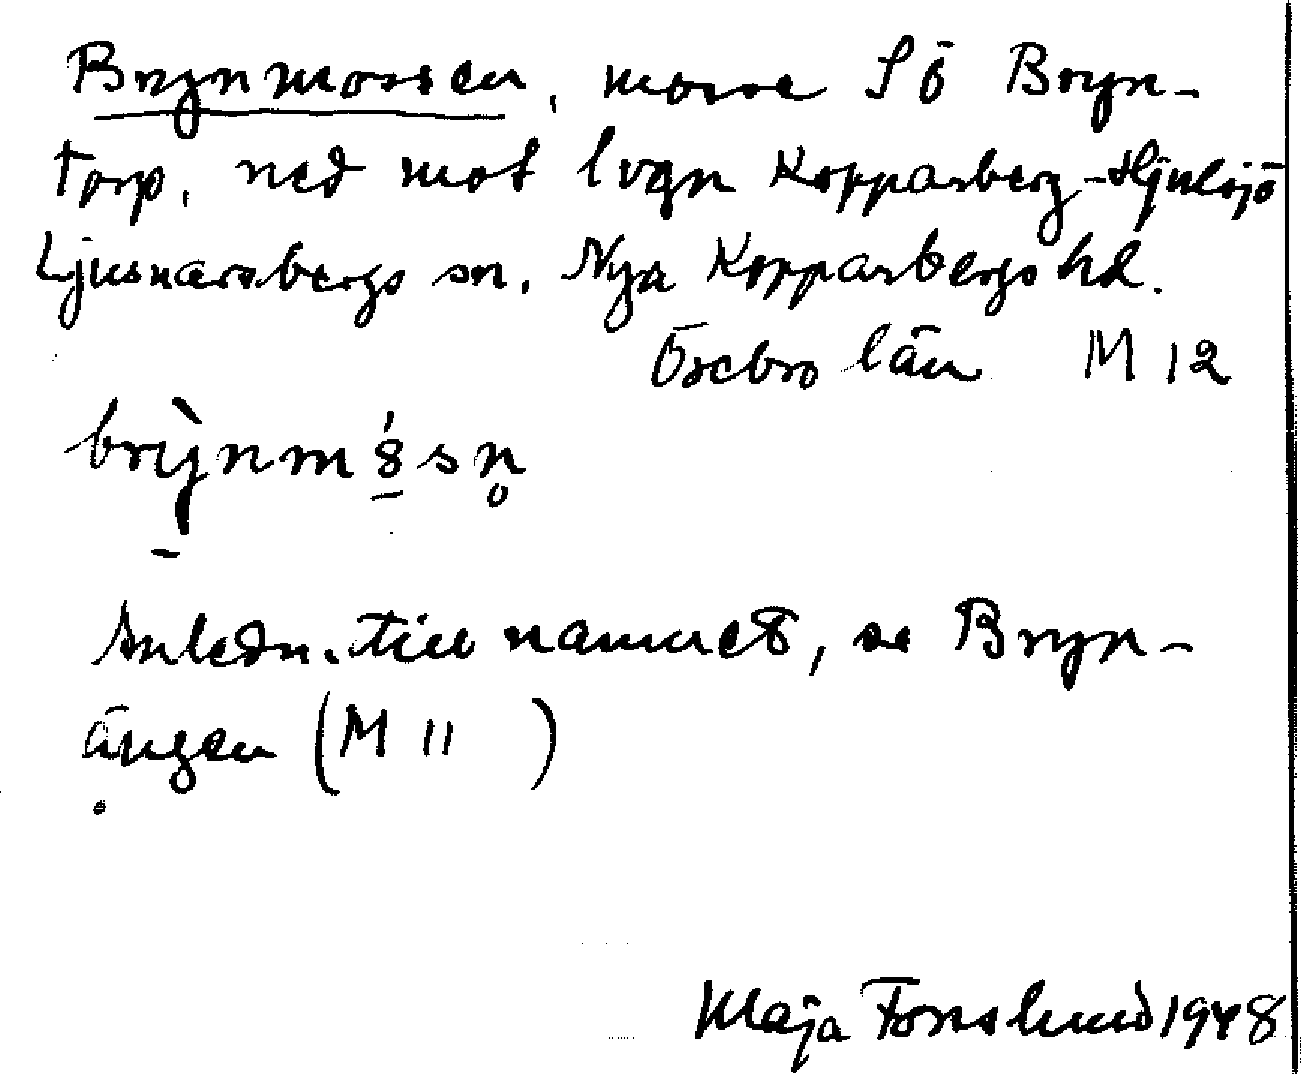 Brynmossen, mosse SÖ Bryn-
torp, ned mot lvgn Kopparberg-Hjulsjö
Ljusnarsbergs sn. Nya Kopparbergs hd.
Örebro län M 12
Anledn. till namnet, se Bryn-
ängen (M 11 )
Maja Forslund 1948